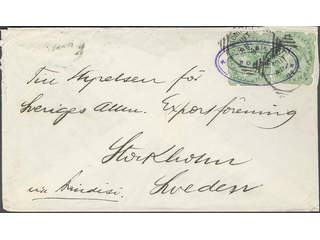 Till Styrelsen för
Sveriges Allm. Exportförening
Stockholm
via Brindisi. Sweden